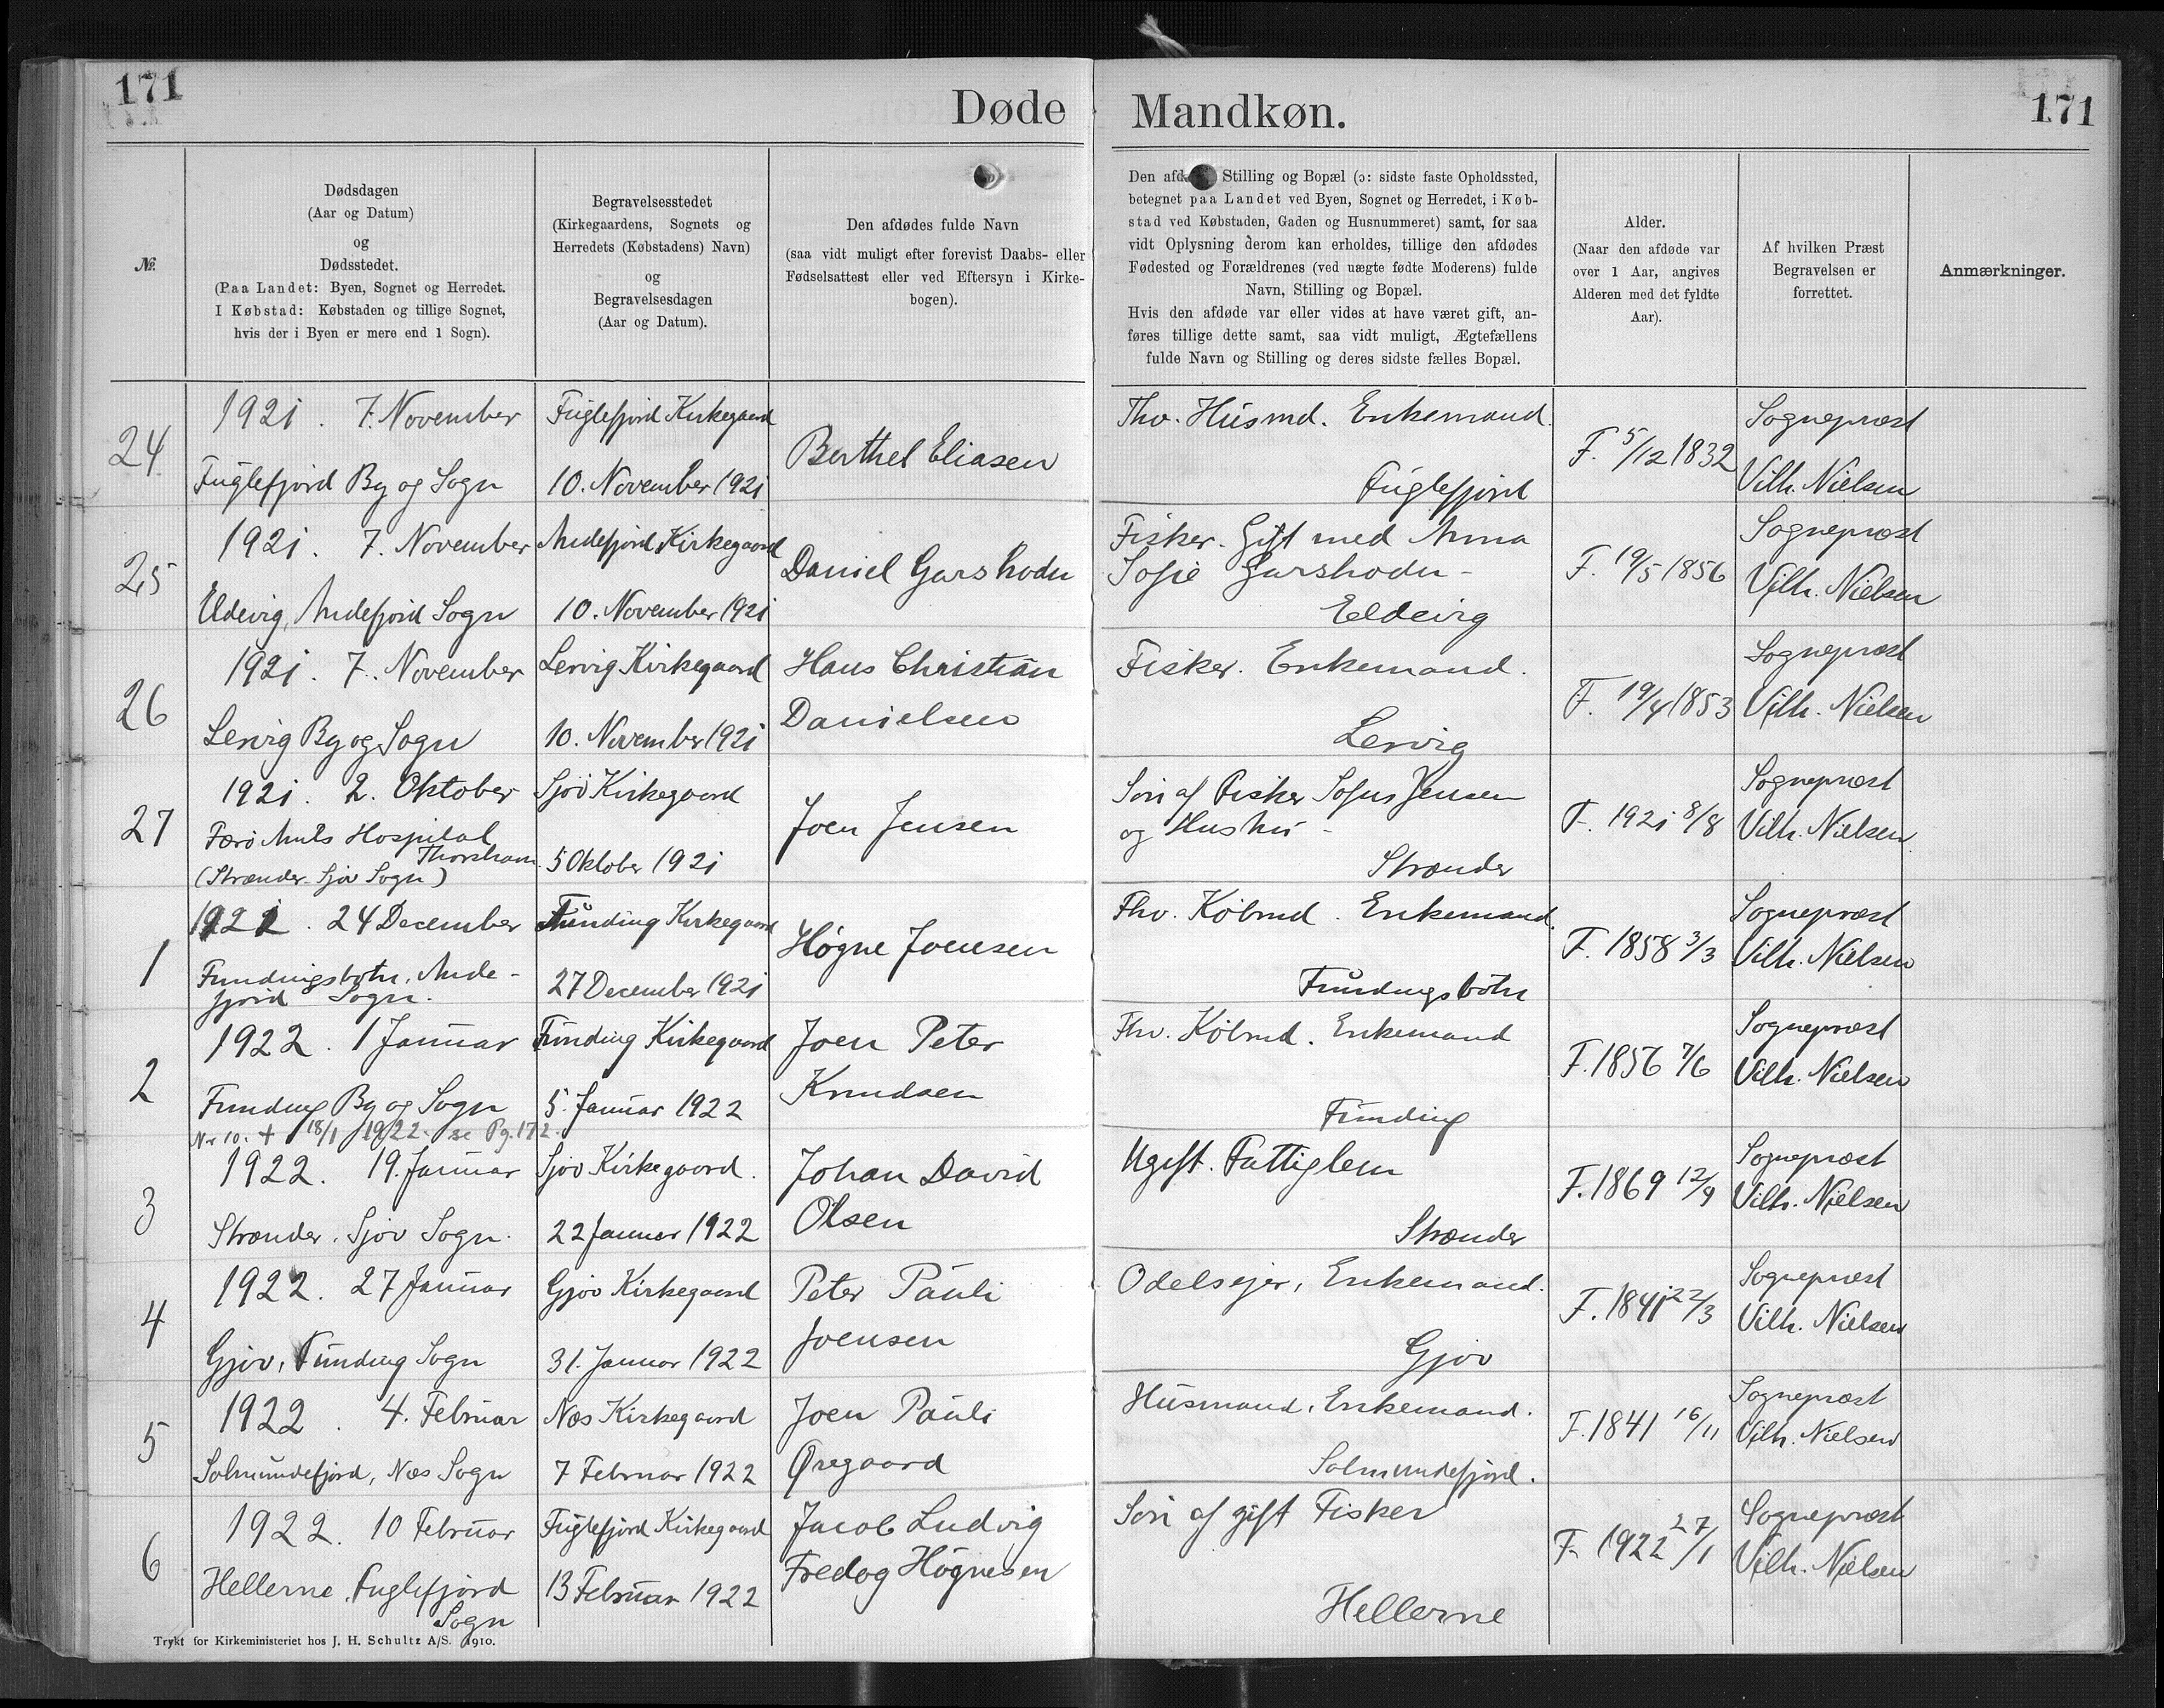 171
Døde Mandkøn.
171
№.
Dødsdagen
(Aar og Datum)
og
Dødsstedet.
(Paa Landet: Byen, Sognet og Herredet.
I Købstad: Købstaden og tillige Sognet,
hvis der i Byen er mere end 1 Sogn).
Begravelsesstedet
(Kirkegaardens, Sognets og
Herredets (Købstadens) Navn)
og
Begravelsesdagen
(Aar og Datum).
Den afdødes fulde Navn
(saa vidt muligt efter forevist Daabs- eller
Fødselsattest eller ved Eftersyn i Kirke-
bogen).
Den Stilling og Bopæl (ɔ: sidste faste Opholdssted,
betegnet paa Landet ved Byen, Sognet og Herredet, i Køb-
stad ved Købstaden, Gaden og Husnummeret) samt, for saa
vidt Oplysning derom kan erholdes, tillige den afdødes
Fødested og Forældrenes (ved uægte fødte Moderens) fulde
Navn, Stilling og Bopæl.
Hvis den afdøde var eller vides at have været gift, an-
føres tillige dette samt, saa vidt muligt, Ægtefællens
fulde Navn og Stilling og deres sidste fælles Bopæl.
Alder.
(Naar den afdøde var
over 1 Aar, angives
Alderen med det fyldte
Aar).
Af hvilken Præst
Begravelsen er
forrettet.
Anmærkninger.
24
1921. 7. November
Fuglefjord By og Sogn
Fuglefjord Kirkegaard
10. November 1921
Berthel Eliasen
Thv. Husmd. Enkemand.
Fuglefjord
F. 5/12 1832
Sognepræst
Vilh. Nielsen
25
1921. 7. November
Eldevig, Andefjord Sogn
Andefjord Kirkegaard
10. November 1921
Daniel Garshodn
Fisker. Gift med Anna
Sofie Garshodn -
Eldevig
F. 19/5 1856
Sognepræst
Vilh. Nielsen
26
1921. 7. November
Lervig By og Sogn
Lervig Kirkegaard
10. November 1921
Hans Christian
Danielsen
Fisker. Enkemand.
Lervig
F. 19/4 1853
Sognepræst
Vilh. Nielsen
27
1921. 2. Oktober
Færø Amts Hospital
Thorshavn.
(Strænder Sjov Sogn)
Sjov Kirkegaard
5 Oktober 1921
Joen Jensen
Søn af Fisker Sofus Jensen
og Hustru -
Strænder
F. 1921 8/8
Sognepræst
Vilh. Nielsen
1
1921. 24 December
Fundingsbotn, Ande-
fjord Sogn.
Funding Kirkegaard
27 December 1921
Høgne Joensen
Fhv. Købmd. Enkemand.
Fundingsbotn
F. 1858 3/3
Sognepræst
Vilh. Nielsen
2
1922. 1 Januar
Funding By og Sogn
Funding Kirkegaard
5. Januar 1922
Joen Peter
Knudsen
Fhv. Købmd. Enkemand
Funding
F. 1856 7/6
Sognepræst
Vilh. Nielsen
Nr 10. + 18/1 1922. se Pg. 172.
3
1922. 19. Januar
Strænder. Sjov Sogn.
Sjov Kirkegaard.
22 Januar 1922
Johan David
Olsen
Ugift. Fattiglem
Strænder
F. 1869 12/9
Sognepræst
Vilh. Nielsen
4
1922. 27 Januar
Gjov, Funding Sogn
Gjov Kirkegaard
31. Januar 1922
Peter Pauli
Joensen
Odelsejer, Enkemand.
Gjov
F. 1841 22/3
Sognepræst
Vilh. Nielsen
5
1922. 4. Februar
Solmundefjord, Næs Sogn
Næs Kirkegaard
7 Februar 1922
Joen Pauli
Øregaard
Husmand, Enkemand.
Solmundefjord.
F. 1841 16/11
Sognepræst
Vilh. Nielsen
6
1922. 10 Februar
Hellerne, Fuglefjord
Sogn
Fuglefjord Kirkegaard
13 Februar 1922
Jacob Ludvig
Fredog Høgnesen
Søn af gift Fisker
Hellerne
F. 1922 27/1
Sognepræst
Vilh. Nielsen
Trykt for Kirkeministeriet hos J. H. Schultz A/S. 1910.